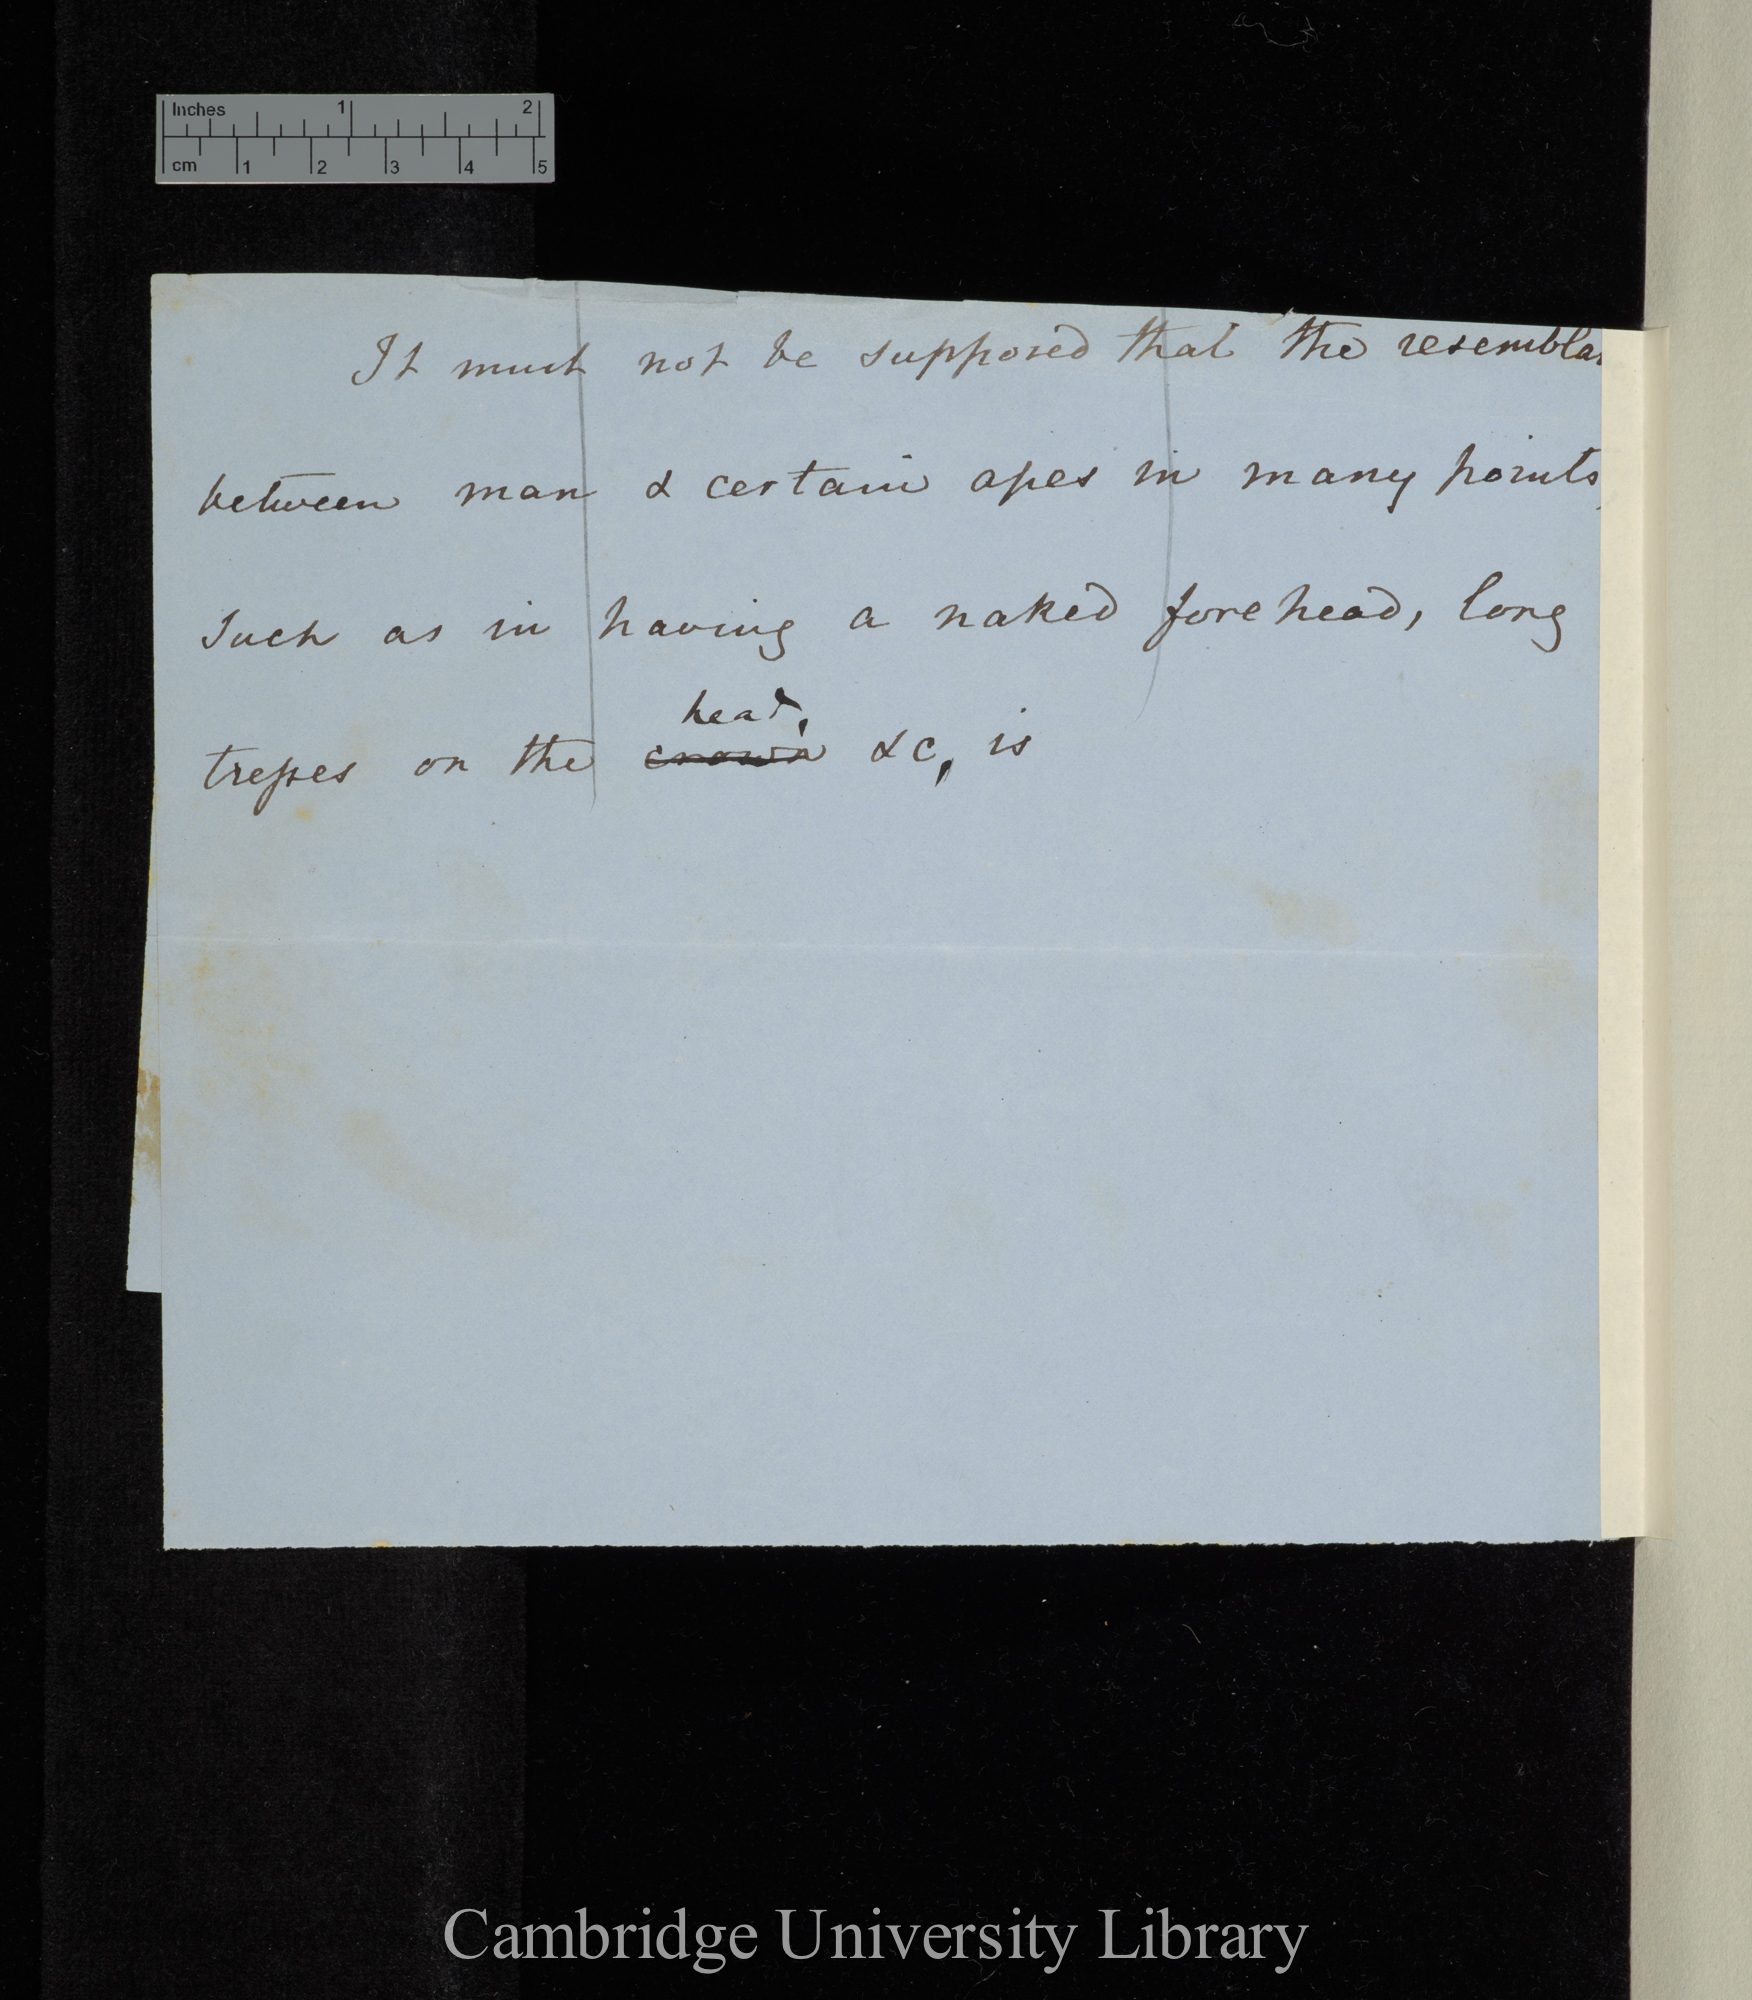 Inches 1 2
cm 1 2 3 4 5
It must not be supposed that the resembla
between man & certain apes in many points,
such as in having a naked forehead, long
head,
tresses on the crown &c, is
Cambridge University Library